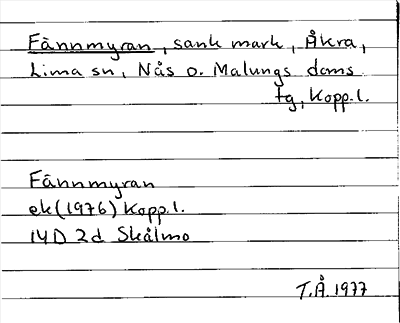 Fännmyran, sank mark, Åkra,
Lima sn, Nås o. Malungs doms
tg, Kopp.l.
Fännmyran
ek (1976) Kopp.l.
14D 2d Skålmo
T.Å. 1977